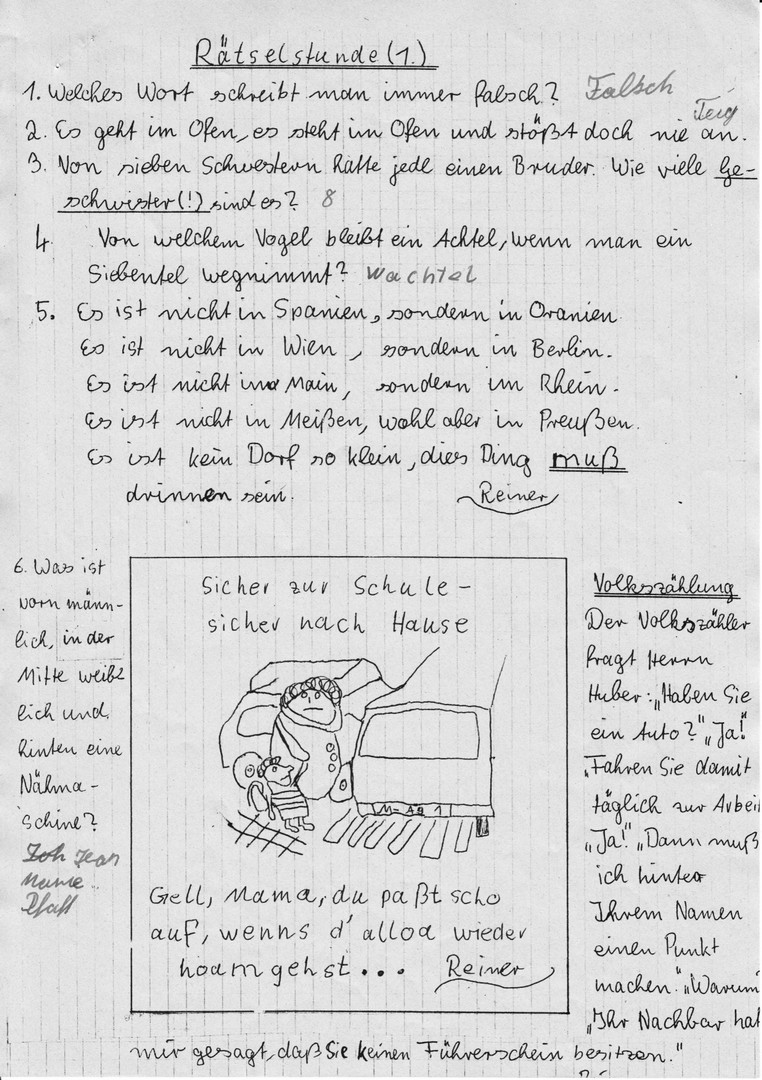 Rätselstunde (1.)
1. Welches Wort schreibt man immer falsch? Falsch
Teig
2. Es geht im Ofen, es steht im Ofen und stößt doch nie an.
3. Von sieben Schwestern hatte jede einen Bruder. Wie viele Ge-
schwister (!) sind es? 8
4. Von welchem Vogel bleibt ein Achtel, wenn man ein
Siebentel wegnimmt? Wachtel
5. Es ist nicht in Spanien, sondern in Oranien
Es ist nicht in Wien, sondern in Berlin.
Es ist nicht im Main, sondern im Rhein.
Es ist nicht in Meißen, wohl aber in Preußen.
Es ist kein Dorf so klein, dies Ding muß
drinnen sein.
Reiner
6. Was ist
vorn männ-
lich, in der
Mitte weib-
lich und
hinten eine
Nähma-
schine?
Jean
Pfaff
Sicher zur Schule -
sicher nach Hause
M-AQ 1
Gell, Mama, du paßt scho
auf, wenns d'alloa wieder
hoam gehst...
Reiner
Volkszählung
Der Volkszähler
fragt Herrn
Huber: „Haben Sie
ein Auto?" „Ja!
„Fahren Sie damit
täglich zur Arbei
„Ja!" „Dann muß
ich hinter
Ihrem Namen
einen Punkt
machen." „Warum
„Ihr Nachbar hat
mir gesagt, daß Sie keinen Führerschein besitzen."